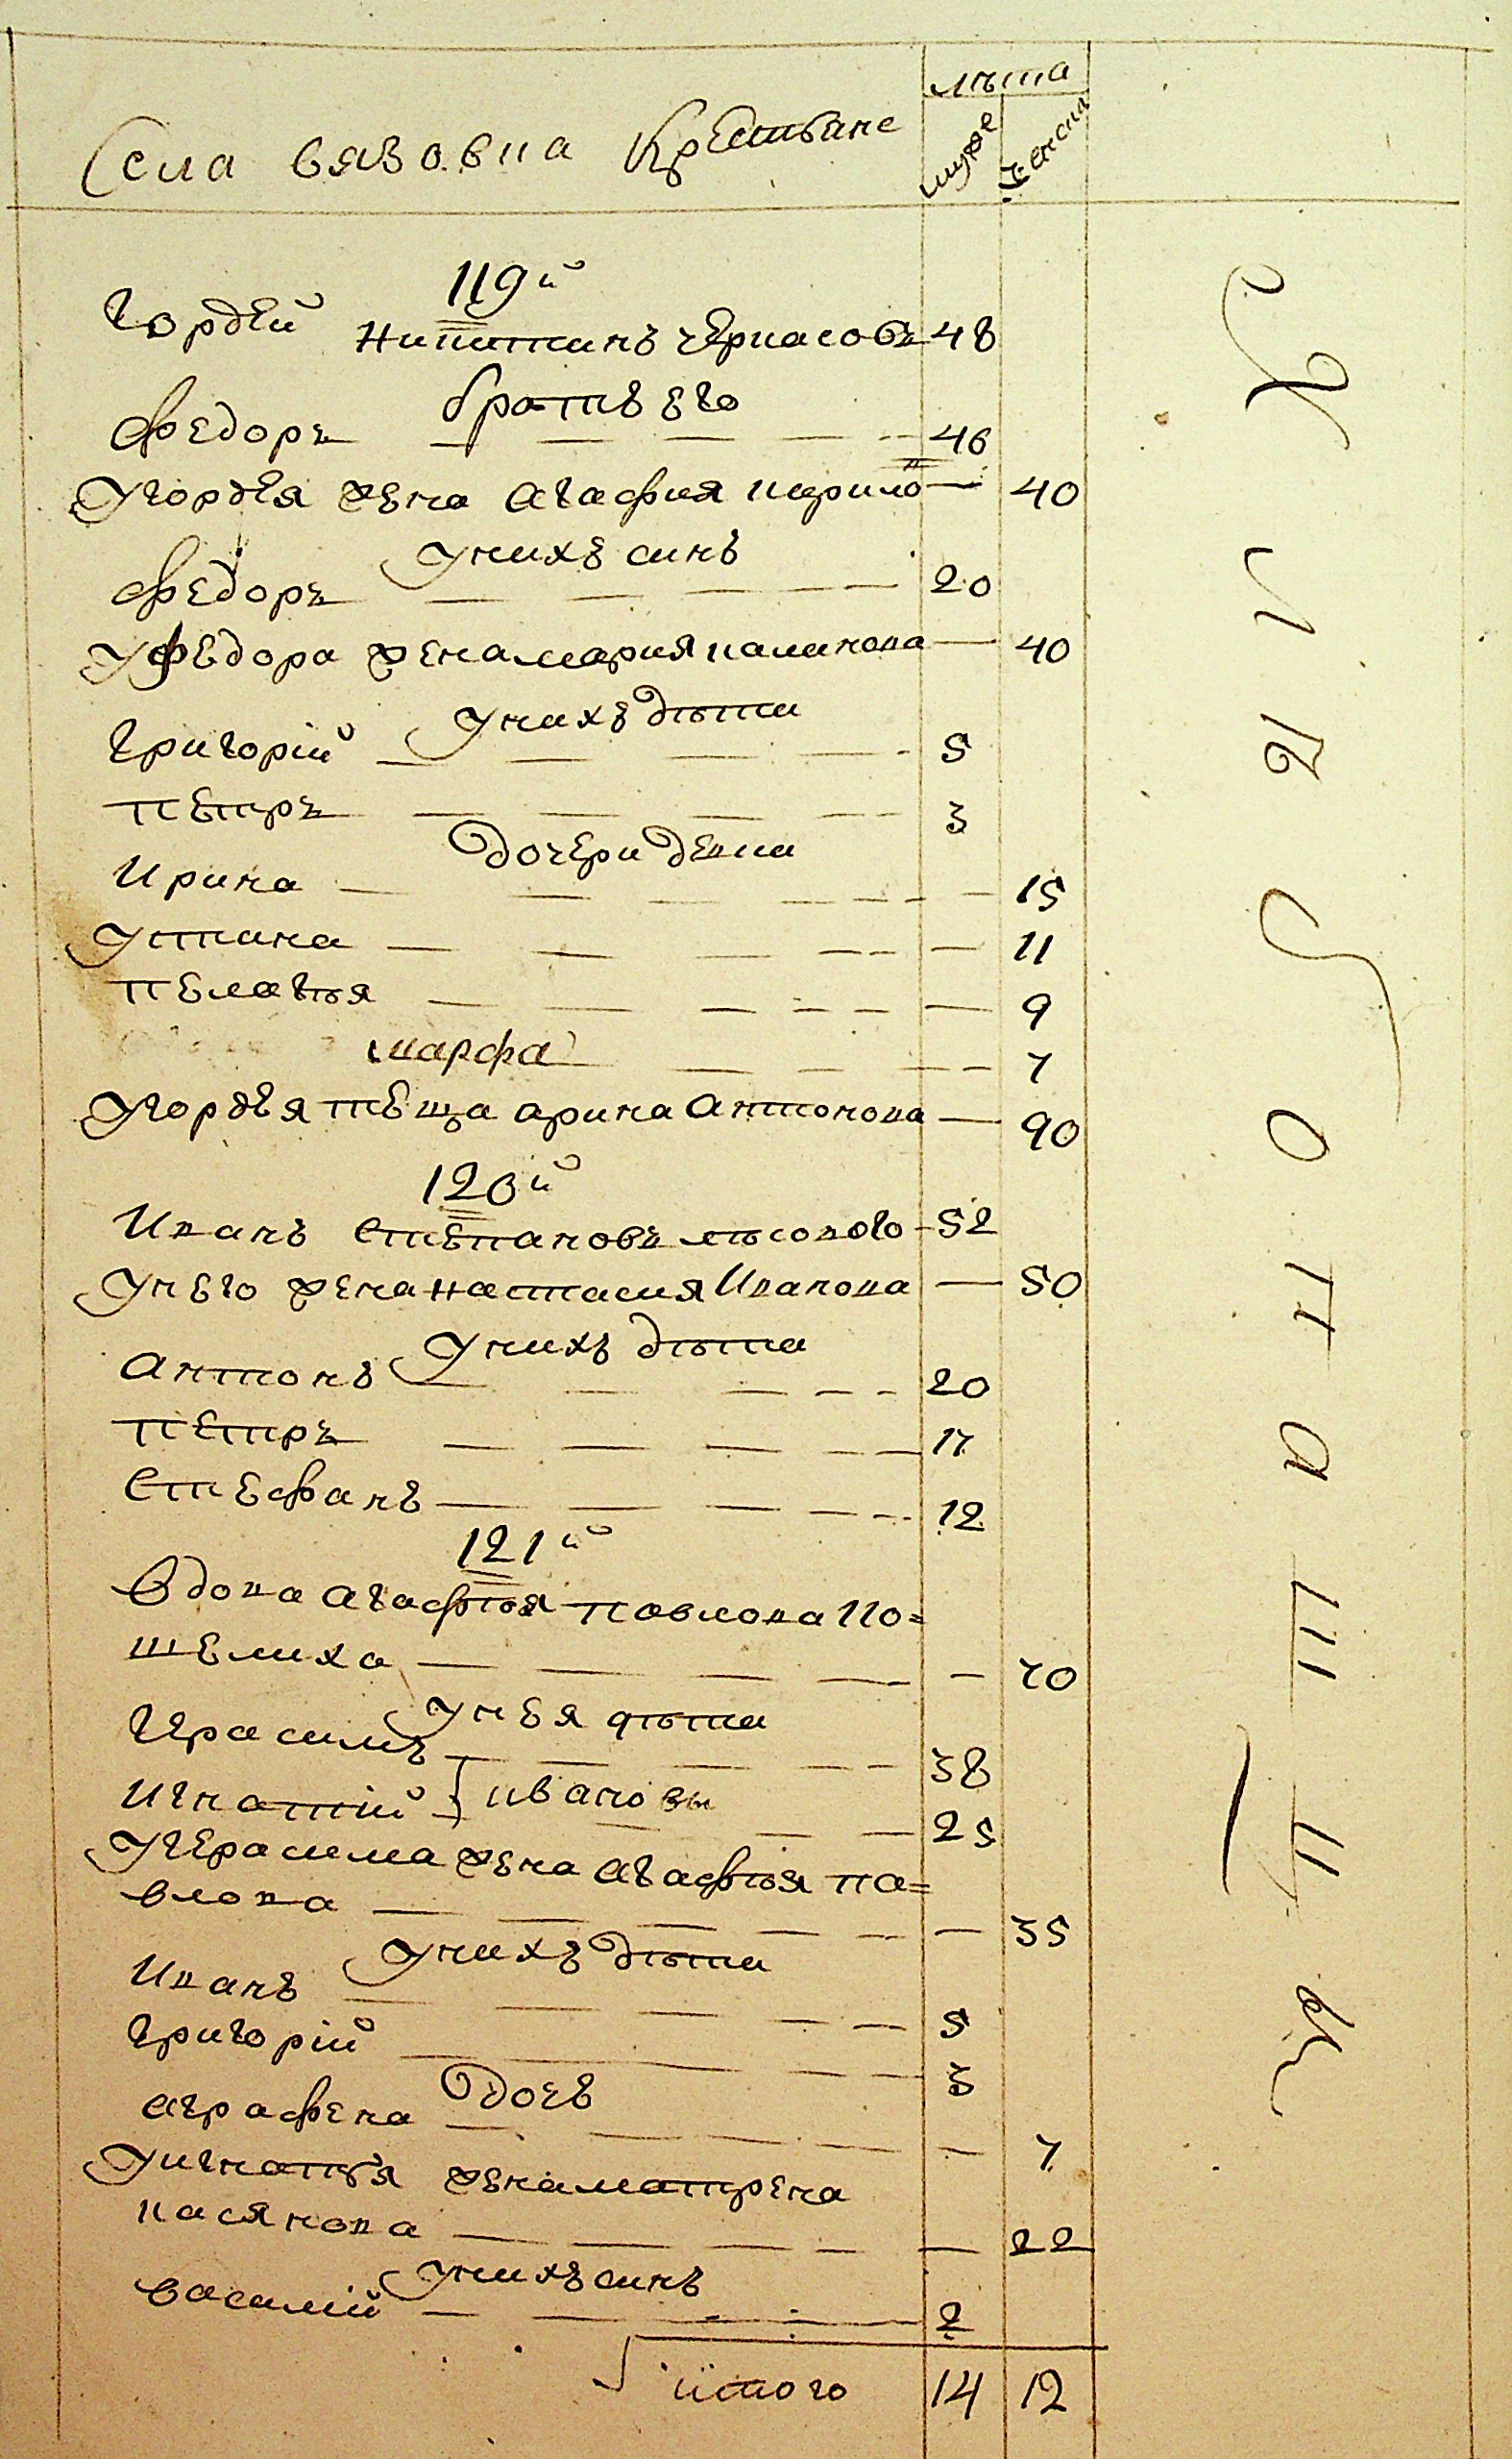 лѣта
Села вязовка Крестьяне
муже
женска
119й
Гордѣй Никитинъ черкасовъ 48
братъ его
Федоръ 46
У гордѣя жена Агафия кирило 40
У нихъ синъ
Федоръ 20
У федора жена мария калинова 40
У нихъ дѣти
Григорій 5
Петръ 3
Дочери девки
Ирина 15
Устина 11
Пелагѣя 9
марфа 7
У гордѣя тѣща арина Антонова 90
120й
Иванъ Степановъ лѣсоваго 52
У него жена Настасия Иванова 50
У нихъ дѣти
Антонъ 20
Петръ 17
Стефанъ 12
121й
Вдова Агафѣя павлова Ко=
шелиха 70
У нѣя дѣти
Герасимъ 38
Игнатій } ивановы 25
У герасима жена Агафѣя па=
влова 35
У нихъ дѣти
Иванъ 5
Григорій 3
Дочь
Аграфена 7
У игнатья жена матрена
касянова 22
У нихъ синъ
Василій 2
итого 14 12